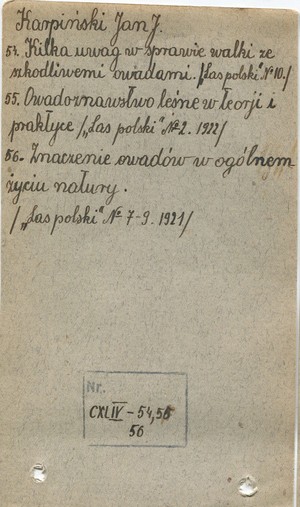 Karpiński Jan J.
54. Kilka uwag w sprawie walki ze
szkodliwemi owadami. /Las polski" № 10./
55. Owadoznawstwo leśne w teorji i
praktyce /„Las polski" № 2. 1922/
56. Znaczenie owadów w ogólnem
życiu natury.
/„Las polski" № 7-9. 1921/
Nr.
CXLIV - 54, 55
56